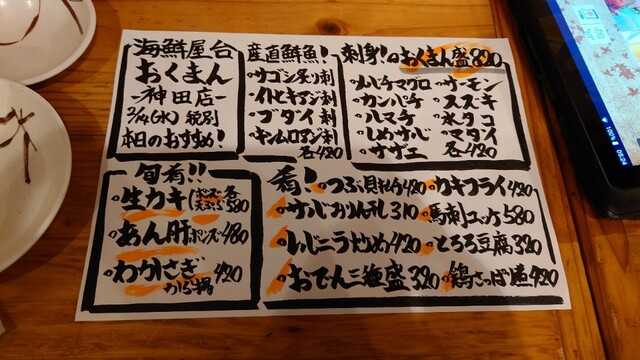 海鮮屋台
おくまん
-神田店-
2/14(水) 税別
本日のおすすめ!
産直鮮魚!
・サゴシ炙り刺
・イトヒキアジ刺
・ブダイ刺
・キンムロアジ刺
各420
刺身! ・おくまん盛820
・メバチマグロ ・サーモン
・カンパチ ・スズキ
・ハマチ ・水タコ
・しめサバ ・マダイ
・サザエ 各420
旬肴!!
・生カキ (ポンズ・天ぷら 各580
・あん肝 ポンズ・480
・わかさぎから揚 420
肴! ・つぶ貝 420 ・カキフライ420
・サバきずし310 ・馬刺ユッケ580
・ニラ炒め420 ・とろろ豆腐320
・おでん三種盛320 ・鶏さっぱ煮420
100%